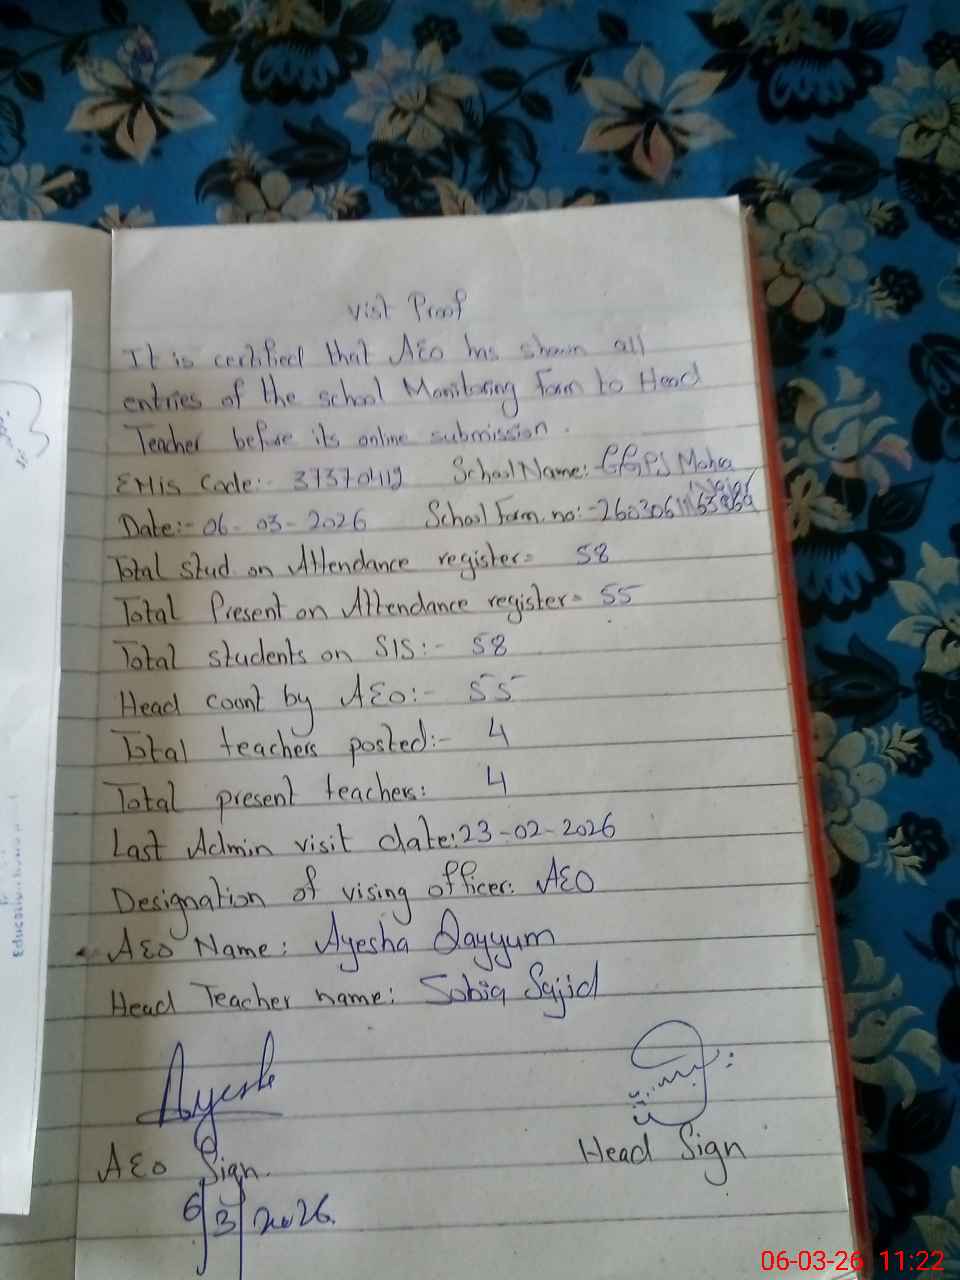 Vist Proof
It is certified that AEO has shown all
entries of the school Monitoring Form to Head
Teacher before its online submission.
EMis Code:- 37370419 School Name:- GGPS Mohra
Date:- 06-03-2026 School Form. no:-
Total stud. on Attendance register= 58
Total Present on Attendance register= 55
Total students on SIS:- 58
Head count by AEO:- 55
Total teachers posted:- 4
Total present teachers: 4
Last Admin visit date:23-02-2026
Designation of vising officer: AEO
AEO Name: Ayesha Qayyum
Head Teacher name: Sobia Sajid
Ayesha
AEO Sign
Head Sign
6/3/2026.
Education
06-03-26 11:22